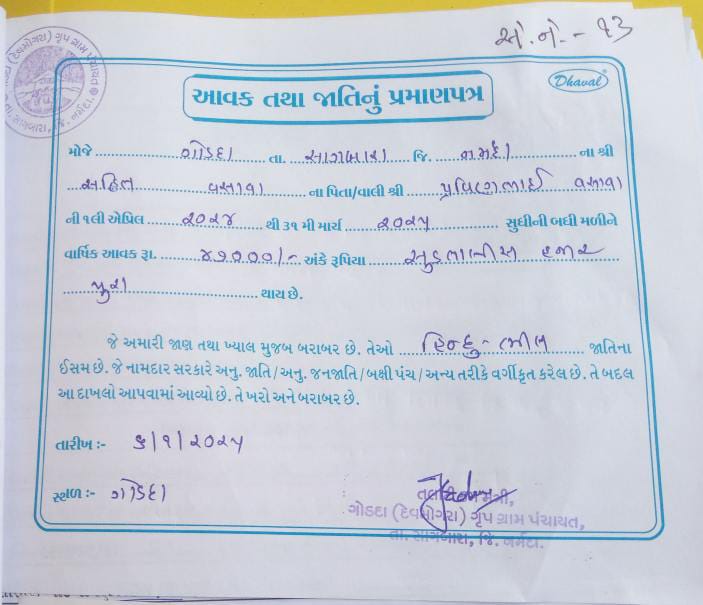 ઓ.નં.- ૧૩
(દેવમોગરા) ગૃપ ગ્રામ પંચાયત
તા. સાગબારા, જિ. નર્મદા.
Dhaval®
આવક તથા જાતિનું પ્રમાણપત્ર
મોજે ગોડદા તા. સાગબારા જિ. નર્મદા ના શ્રી
વસાવા ના પિતા/વાલી શ્રી પ્રવિણભાઈ વસાવા
ની ૧લી એપ્રિલ ૨૦૨૪ થી ૩૧ મી માર્ચ ૨૦૨૫ સુધીની બધી મળીને
વાર્ષિક આવક રૂા. ૪૭૦૦૦/- અંકે રૂપિયા સુડતાલીસ હજાર
પુરા થાય છે.
જે અમારી જાણ તથા ખ્યાલ મુજબ બરાબર છે. તેઓ હિન્દુ-ભીલ જાતિના
ઈસમ છે. જે નામદાર સરકારે અનુ. જાતિ/અનુ. જનજાતિ/બક્ષી પંચ/અન્ય તરીકે વર્ગીકૃત કરેલ છે. તે બદલ
આ દાખલો આપવામાં આવ્યો છે. તે ખરો અને બરાબર છે.
તારીખ :- ૬/૧/૨૦૨૫
સ્થળ :- ગોડદા
ગોડદા (દેવમોગરા) ગૃપ ગ્રામ પંચાયત,
તા. સાગબારા, જિ. નર્મદા.